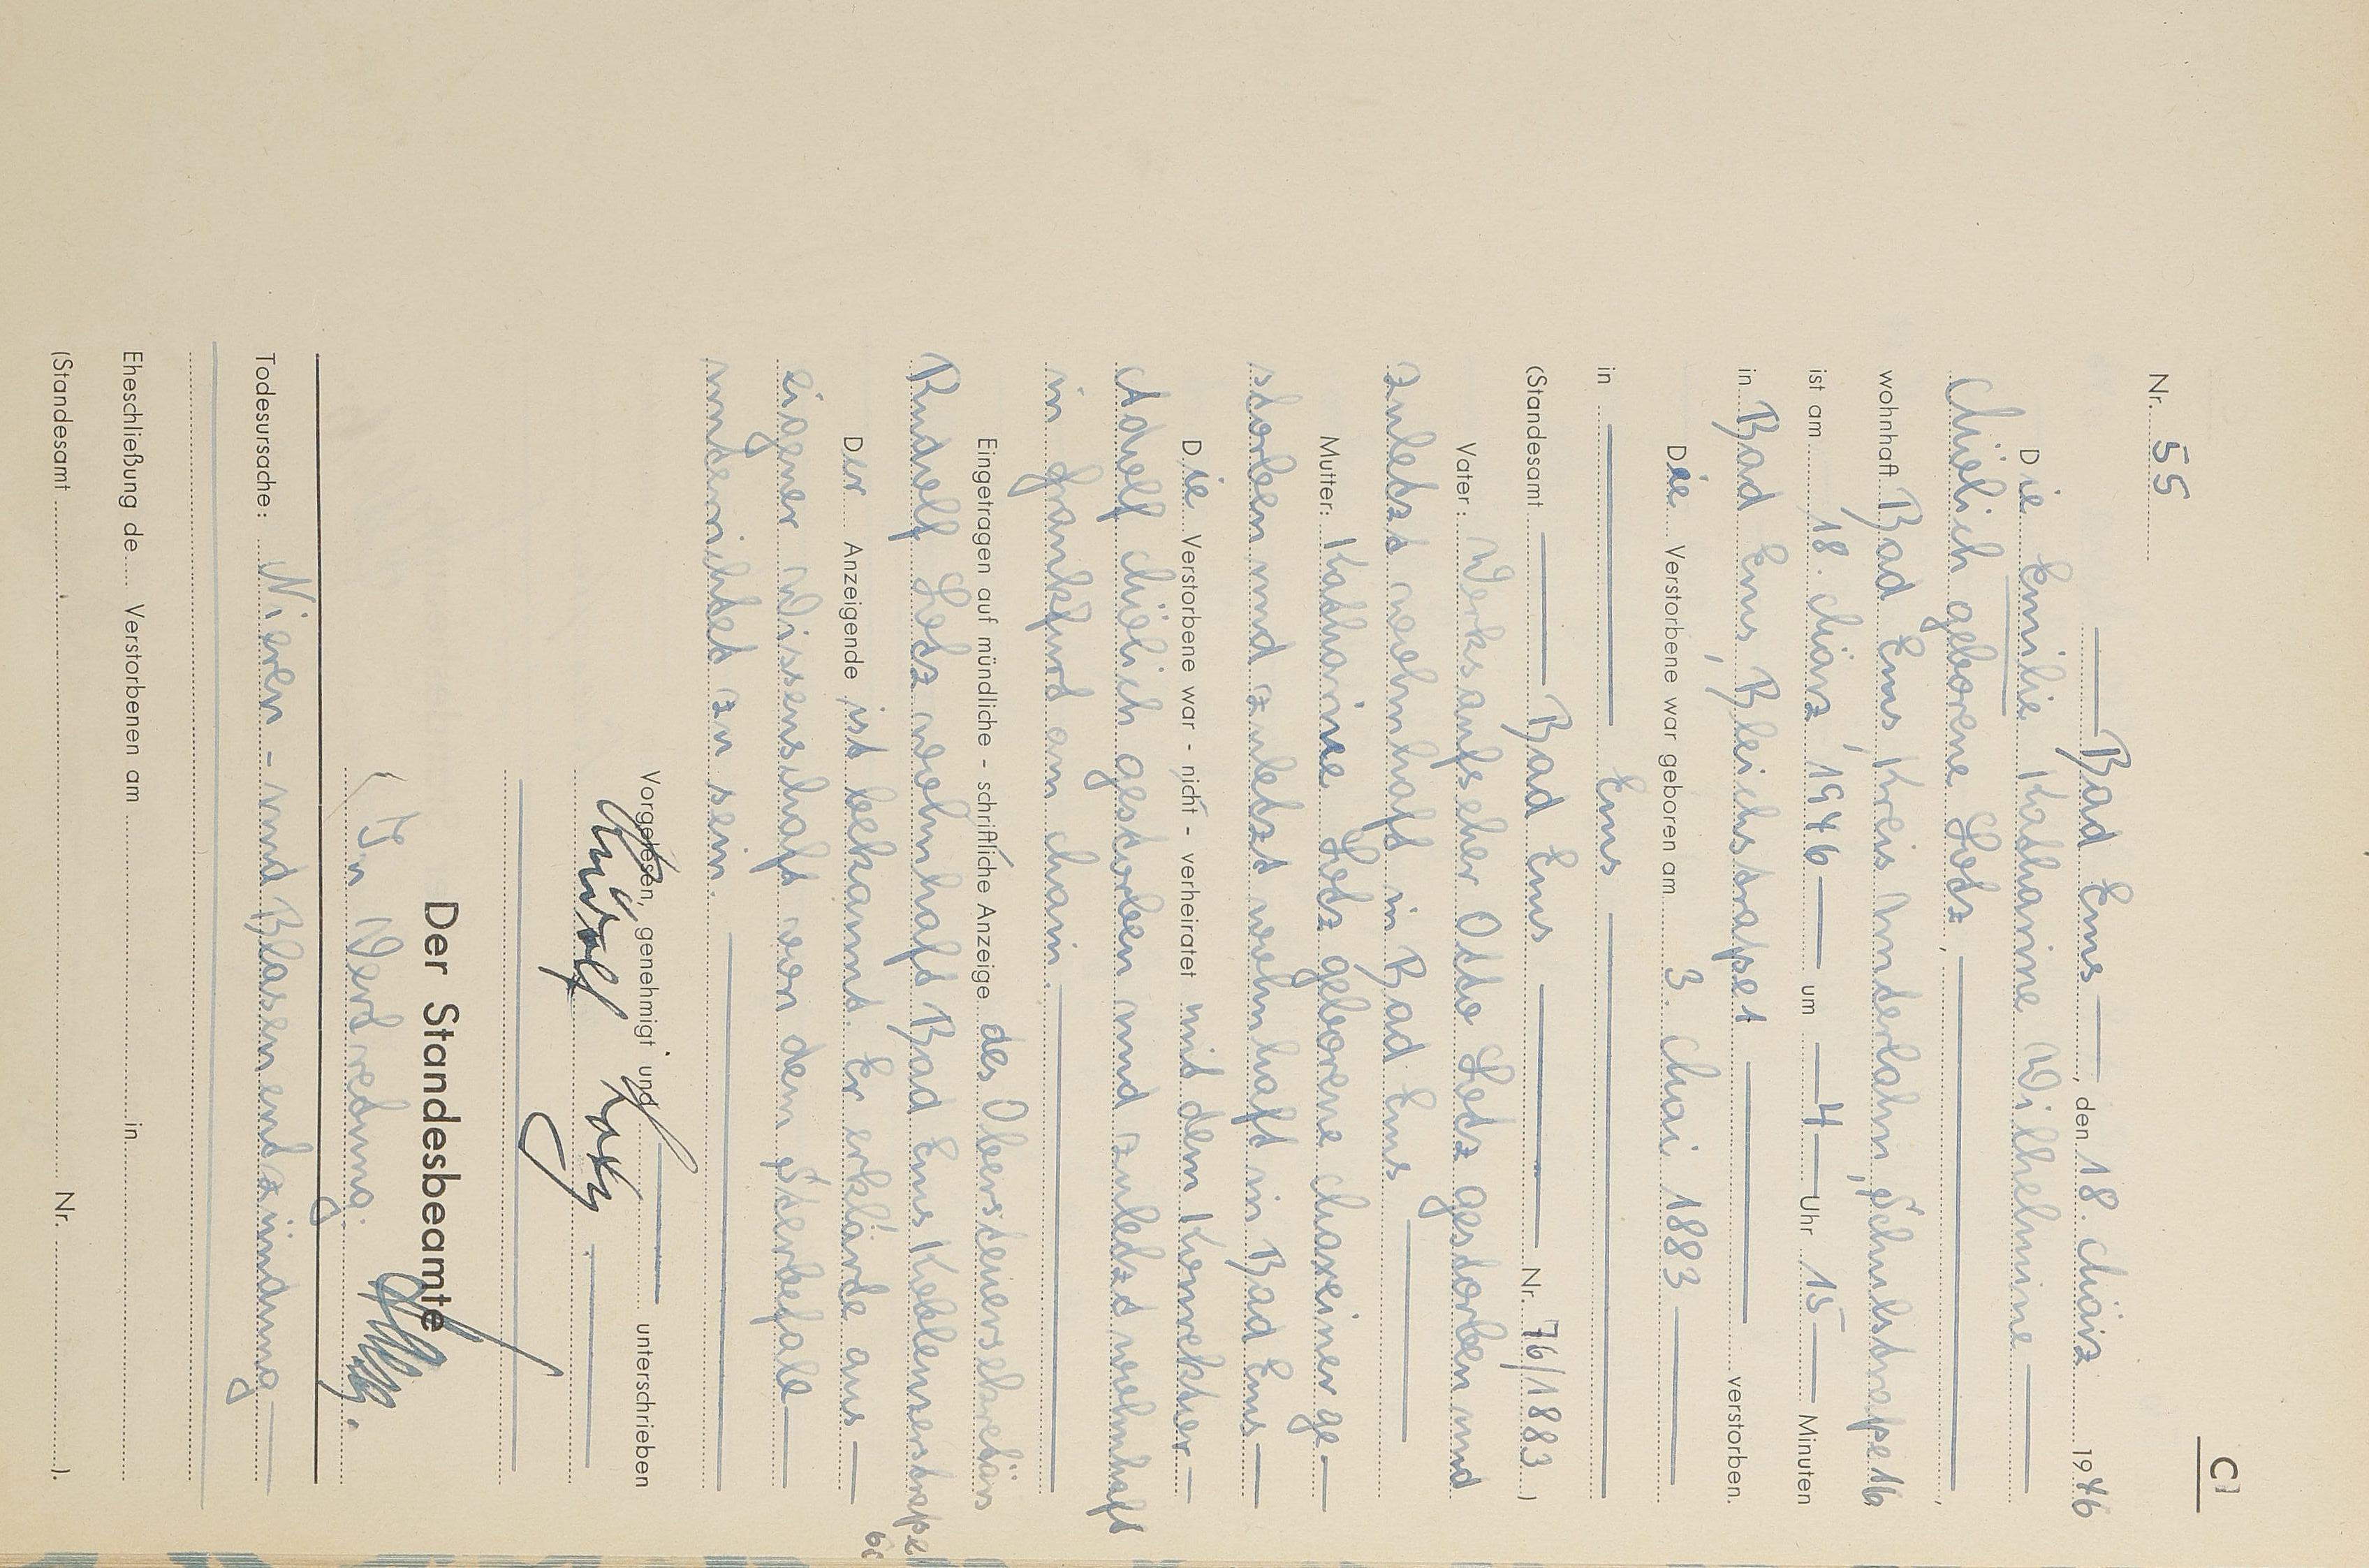 C
Nr. 55
Bad Ems, den 18. März 1946
Die Emilie Katharine Wilhelmine
Mülich geborene Lotz,
wohnhaft Bad Ems, Kreis Unterlahn, Schulstraße 16
ist am 18. März 1946 um 4 Uhr 15 Minuten
in Bad Ems, Bleichstraße 1 verstorben.
Die Verstorbene war geboren am 3. Mai 1883
in Ems
(Standesamt Bad Ems Nr. 76/1883)
Vater: Werksaufseher Otto Lotz gestorben und
zuletzt wohnhaft in Bad Ems.
Mutter: Katharine Lotz geborene Mareiner ge-
storben und zuletzt wohnhaft in Bad Ems
Die Verstorbene war - nicht - verheiratet mit dem Konrektor
Adolf Mülich gestorben und zuletzt wohnhaft
in Frankfurt am Main.
Eingetragen auf mündliche - schriftliche Anzeige des Obersteuersekretärs
Rudolf Lotz wohnhaft Bad Ems Koblenzerstraße
60
Der Anzeigende ist bekannt. Er erklärte aus
eigener Wissenschaft von dem Sterbefalle
unterrichtet zu sein.
Vorgelesen, genehmigt und unterschrieben
Rudolf Lotz.
Der Standesbeamte
In Vertretung.
Todesursache: Nieren- und Blasenentzündung
Eheschließung de Verstorbenen am in
(Standesamt Nr. ).